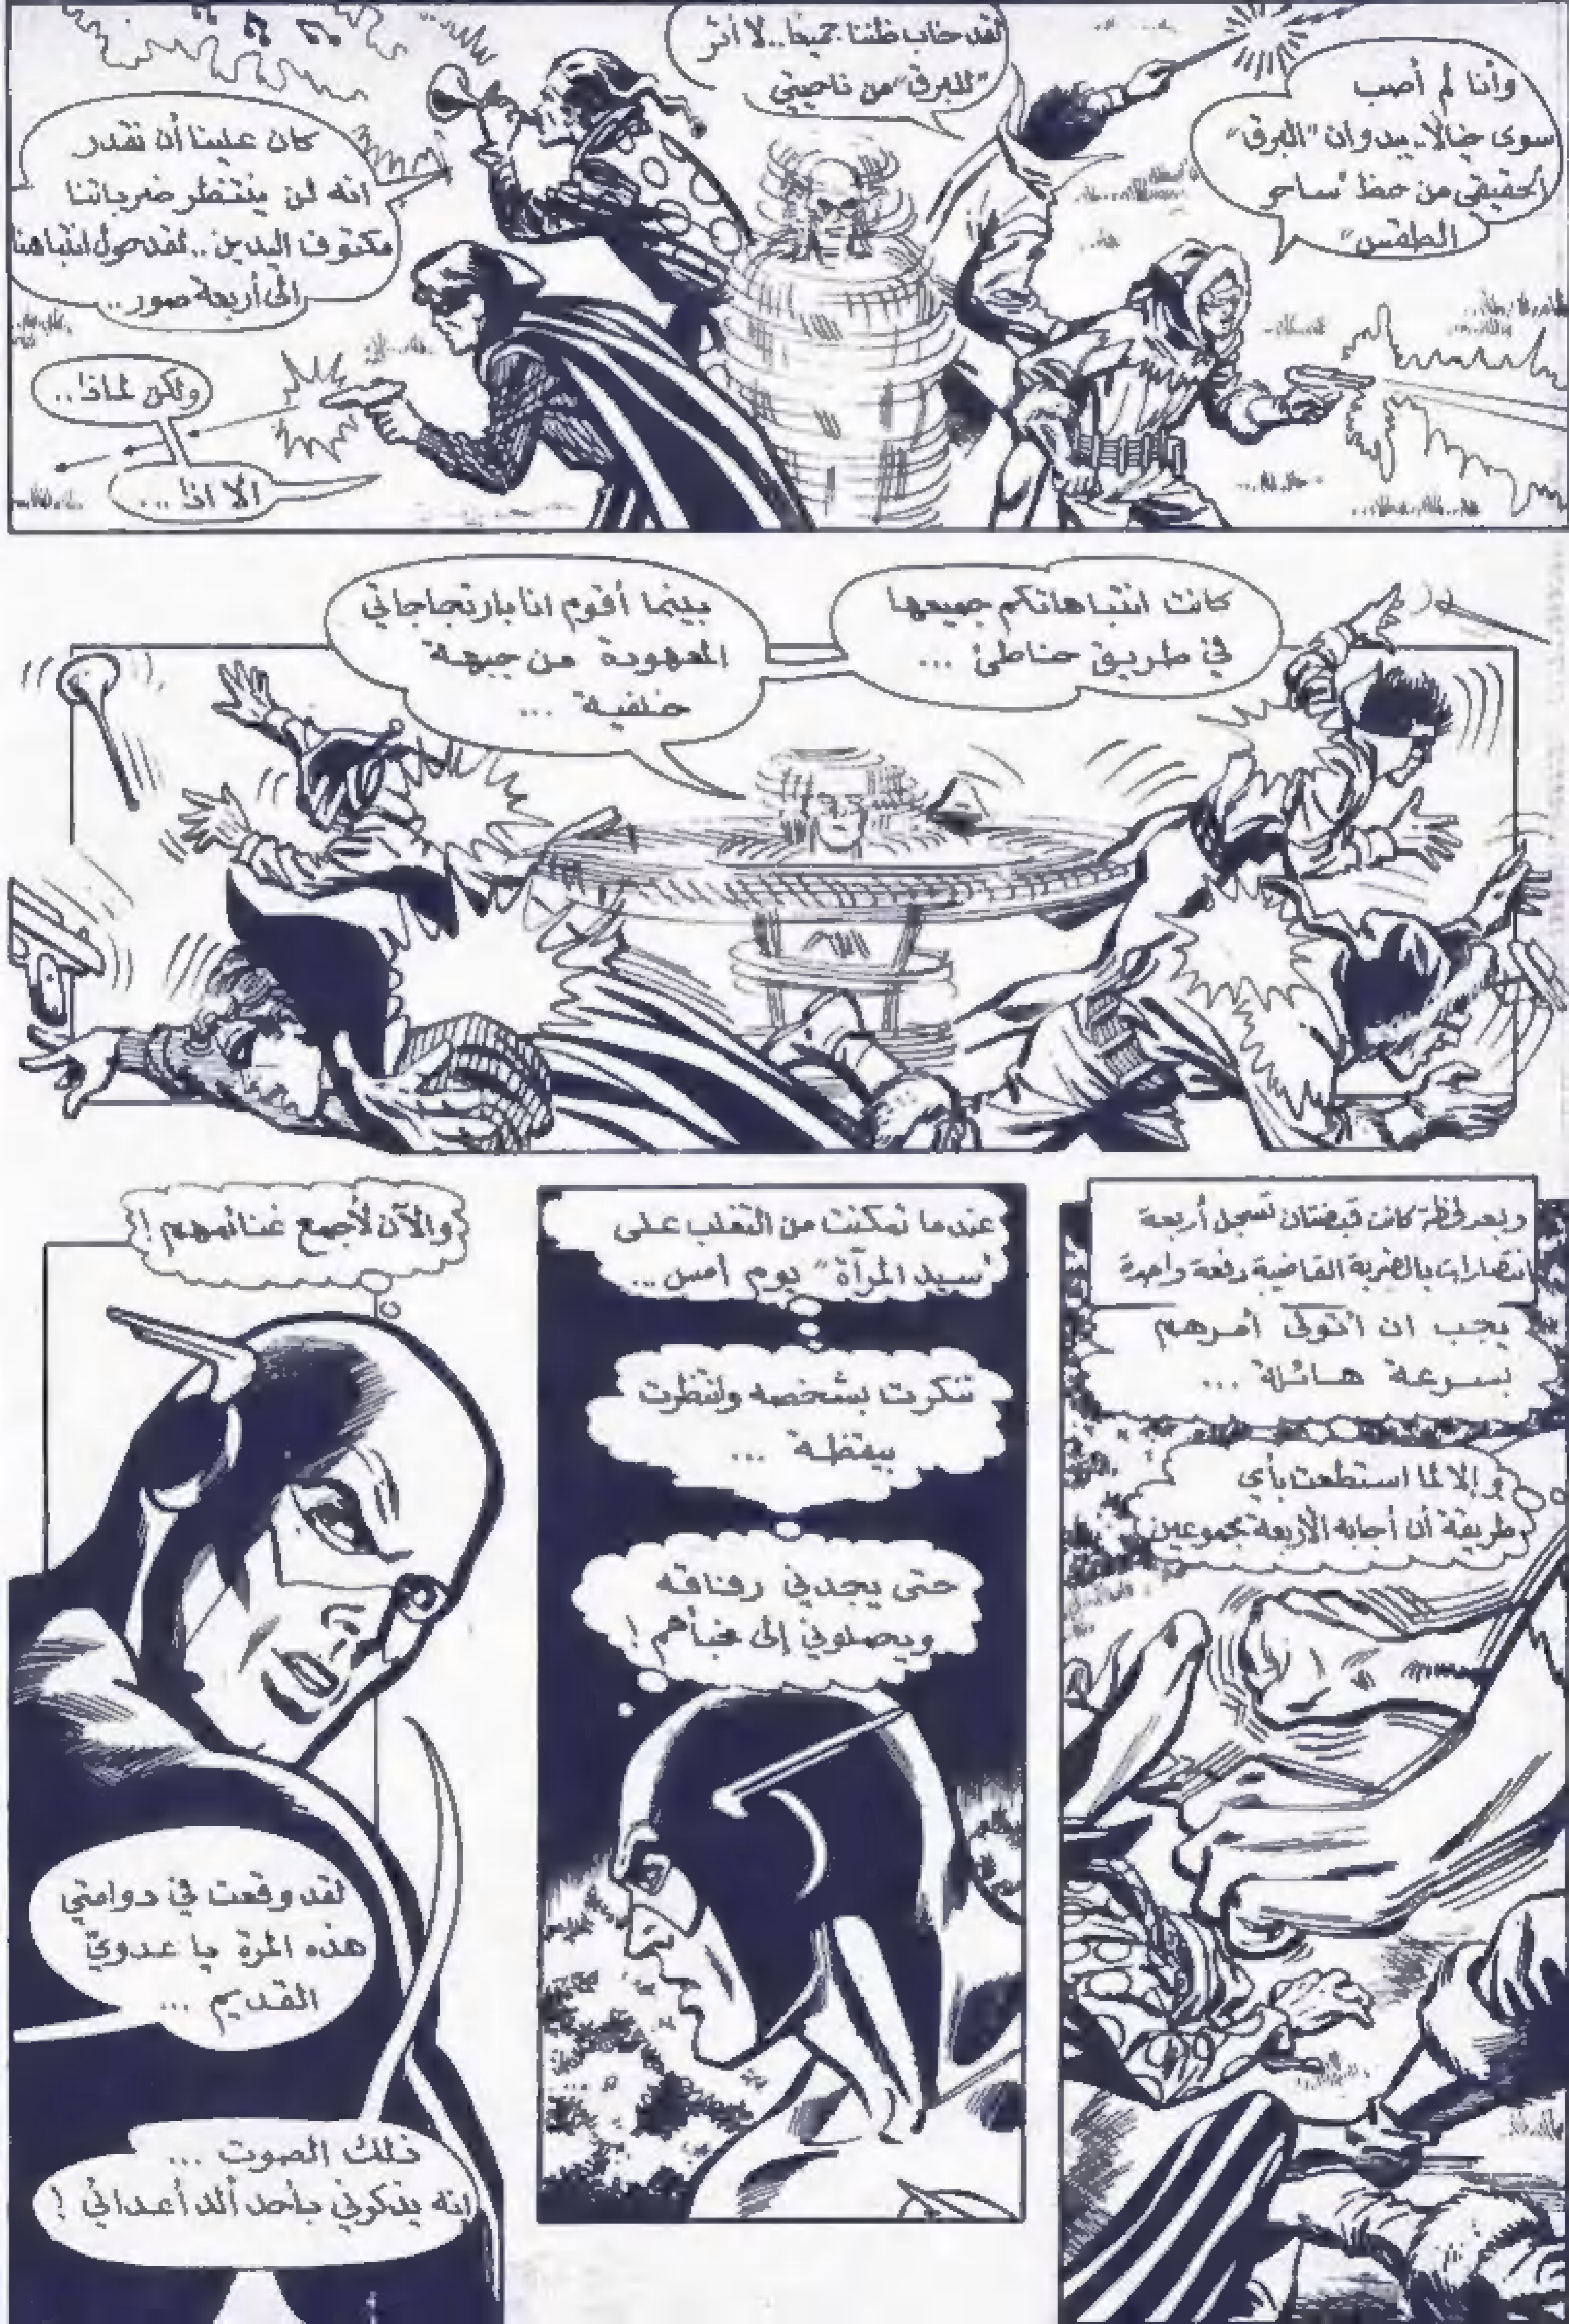 وأنا لم أصب
سوى خيالًا.. يبدو ان "البرق"
الحقيقي من حظ "ساحر
الطقس"
لقد خاب ظننا جميعًا.. لا أثر
"للبرق" من ناحيتي
كان علينا أن نقدر
انه لن ينتظر ضرباتنا
مكتوف اليدين.. لقد حول انتباهنا
الى أربعة صور..
ولكن لماذا..
الا اذا...
كانت انتباهاتكم جميعها
في طريق خاطئ...
بينما أقوم انا بارتجاجاتي
المعهودة من جبهة
خلفية...
وبعد لحظة كانت قبضتان تسجل أربعة
انتصارات بالضربة القاضية دفعة واحدة
يجب ان أتولى أمرهم
بسرعة هائلة...
والا لما استطعت بأي
طريقة أن أجابه الأربعة مجموعين!
عندما تمكنت من التغلب على
"سيد المرآة" يوم أمس...
تنكرت بشخصه وانتظرت
بيقظة...
حتى يجدني رفاقه
ويحملوني إلى مخبأهم!
والآن لأجمع غنائمهم!
لقد وقعت في دوامتي
هذه المرة يا عدويّ
القديم...
ذلك الصوت...
انه يذكرني بأحد ألد أعدائي!